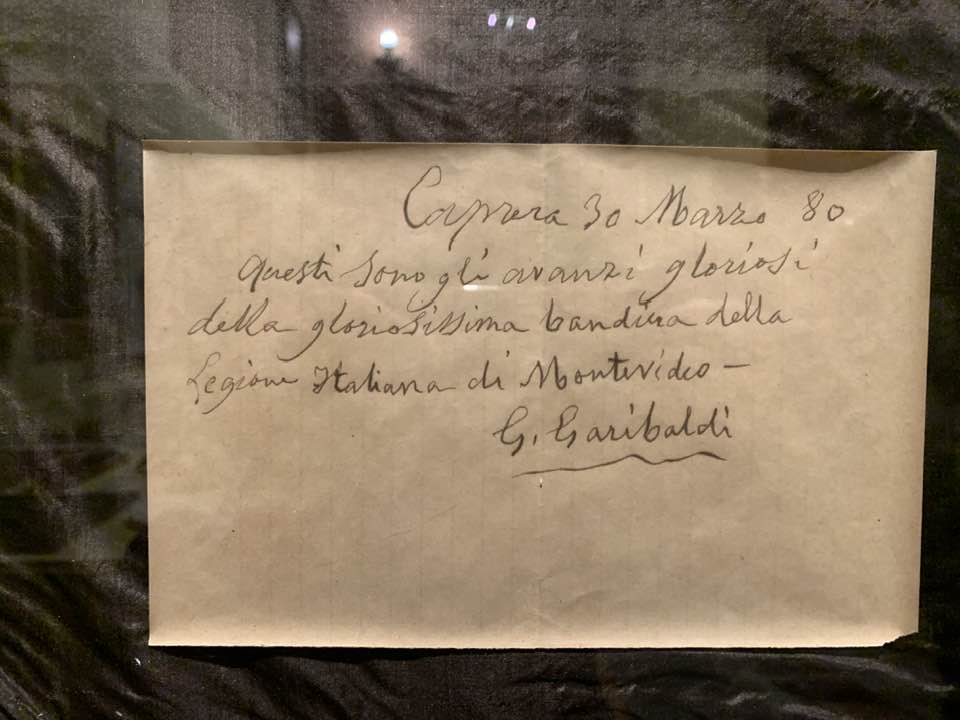 Caprera 30 Marzo 80
Questi sono gli avanzi gloriosi
della gloriosissima bandiera della
Legione Italiana di Montevideo —
G. Garibaldi